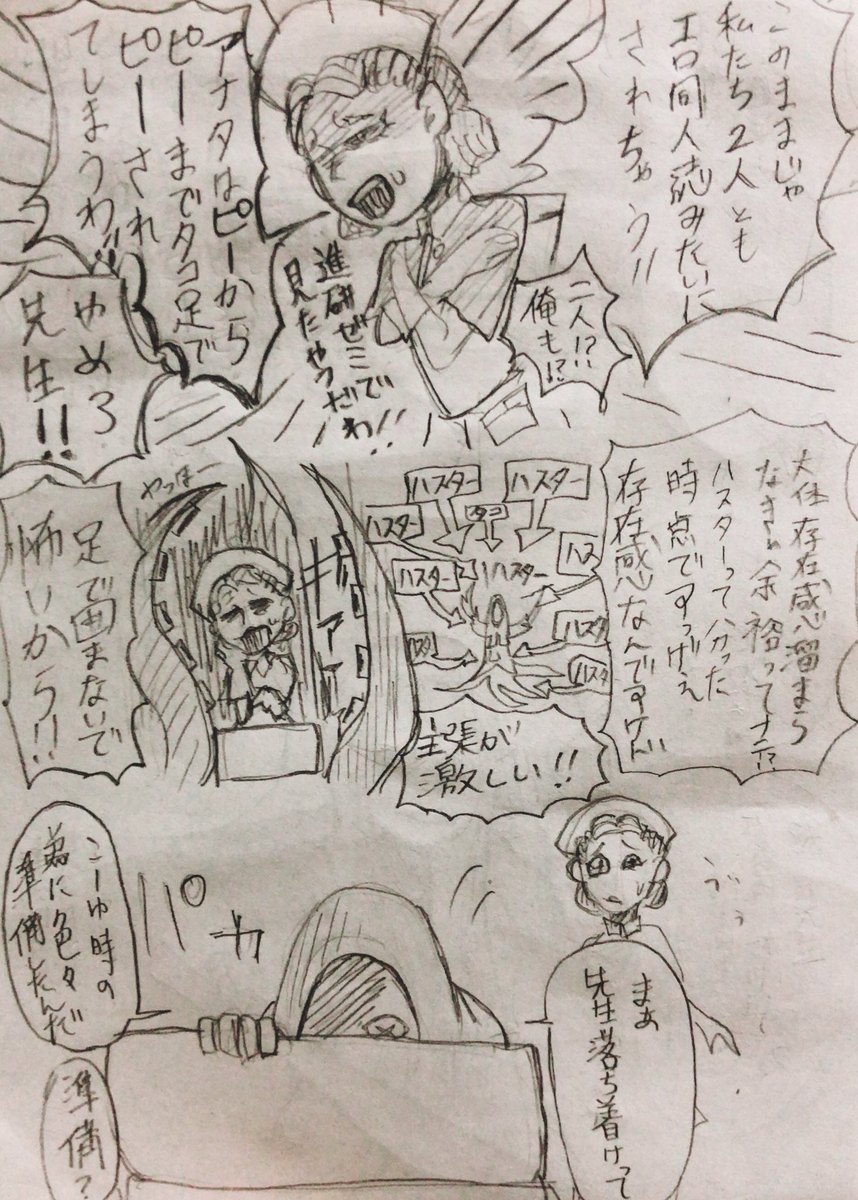 このままじゃ
私たち2人とも
エロ同人誌みたいに
されちゃう!!
二人!?
俺も!?
進研ゼミで
見たやつだわ!!
アナタはピーから
ピーまでタコ足で
ピーされ
てしまうわ!!
やめろ
先生!!
大体存在感溜まら
なきゃ余裕ってナニ!?
ハスターって分った
時点ですっげぇ
存在感なんですけど
ハスター
ハスター
ハスター
ハスター
ハスター
ハス
ハスタ
ハスタ
ハスタ
主張が
激しい!!
やっほー
ギャアー
足で囲まないで
怖いから!!
まぁ
先生落ち着けって
パカ
こーゆ時の
為に色々
準備したんだ
準備?